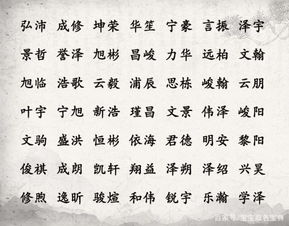 弘沛 成修 坤荣 华笙 宁豪 言振 泽宇
景哲 誉泽 旭彬 昌峻 力华 远柏 文翰
旭临 浩歌 云毅 浦辰 思栋 峻翰 云朋
叶宇 宁旭 新浩 瑾昌 文景 伟泽 峻阳
文驹 盛洪 恒彬 依海 君德 明安 黎阳
俊祺 成朗 凯轩 翔益 泽朔 泽绍 兴昊
修煦 逸昕 骏煊 和伟 锐宇 乐瀚 学泽